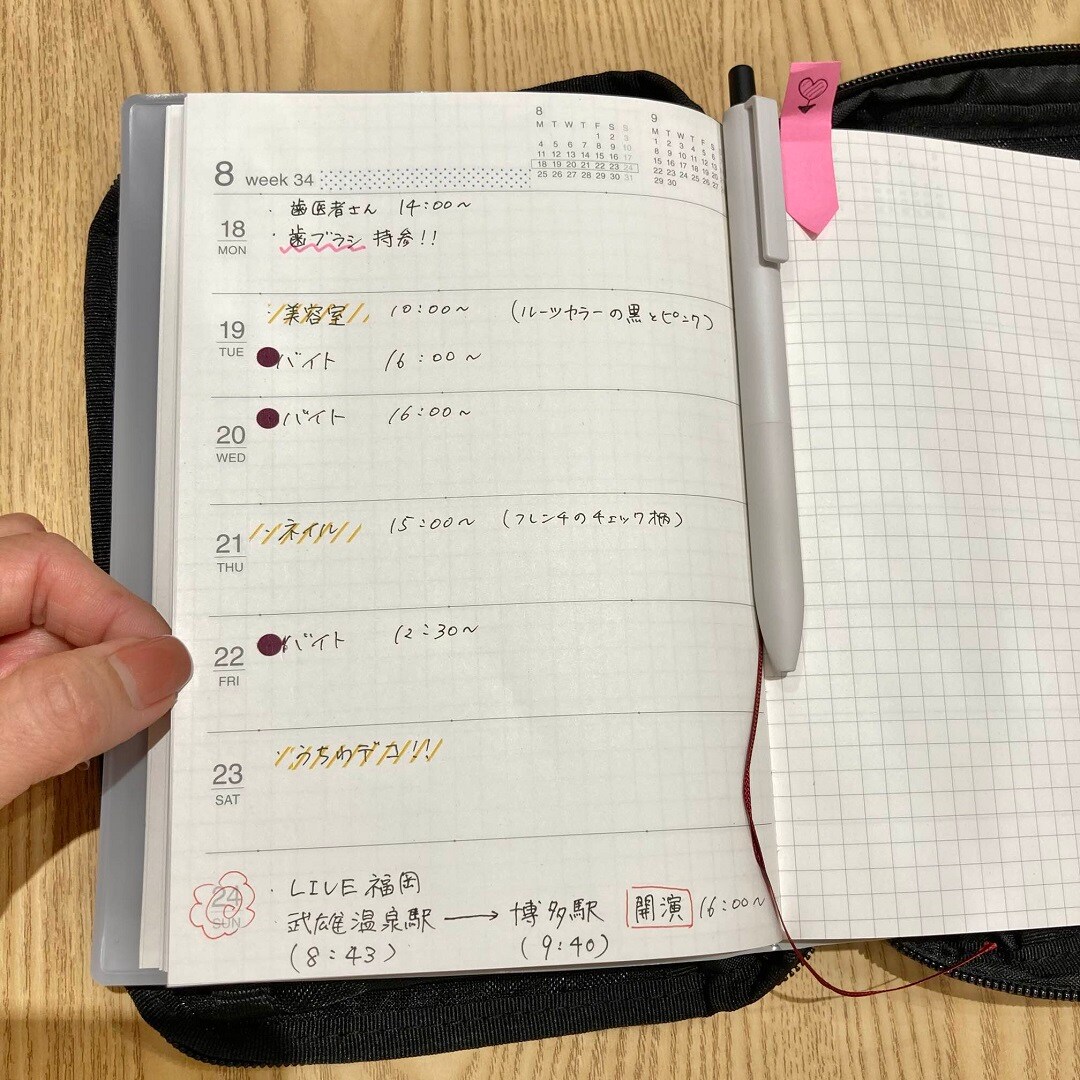 8
M T W T F S S
1 2 3
4 5 6 7 8 9 10
11 12 13 14 15 16 17
18 19 20 21 22 23 24
25 26 27 28 29 30 31
9
M T W T F S
1 2 3 4 5 6
8 9 10 11 12 13
15 16 17 18 19 20
22 23 24 25 26 27
29 30
8 week 34
18 MON
・歯医者さん 14:00~
・歯ブラシ 持参!!
19 TUE
・美容室 10:00~ (ルーツカラーの黒とピンク)
バイト 16:00~
20 WED
バイト 16:00~
21 THU
・ネイル 15:00~ (フレンチのチェック柄)
22 FRI
バイト 12:30~
23 SAT
・うちわデコ!!
24 SUN
・LIVE 福岡
武雄温泉駅 → 博多駅 開演 16:00~
(8:43) (9:40)